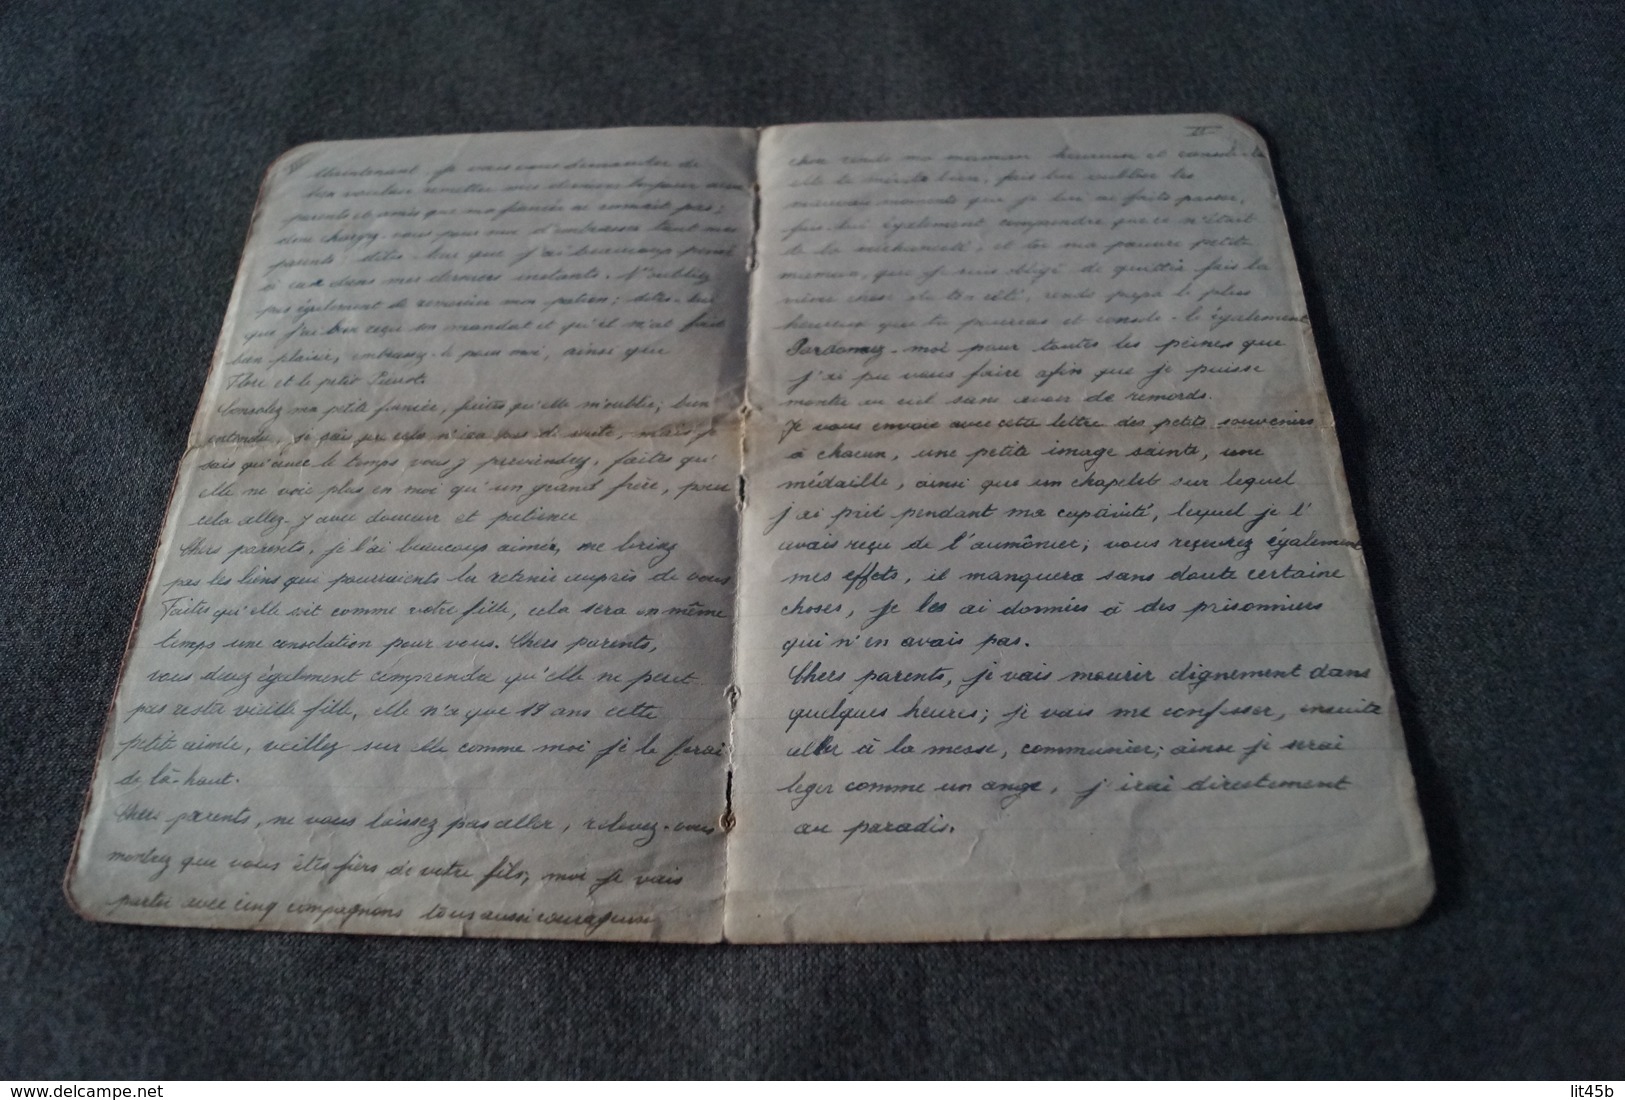 Maintenant je vais vous demander de
bien vouloir remettre mes derniers baisers aux
parents et amis que ma fiancée ne connait pas;
donc chargez-vous pour moi d'embrasser tout mes
parents, dites leur que j'ai beaucoup pensé
à eux dans mes derniers instants. N'oubliez
pas également de remercier mon patron; dites-lui
que j'ai bien reçu son mandat et qu'il m'at fait
bien plaisir, embrassez-le pour moi, ainsi que
Flore et le petit Pierrot.
Consolez ma petite fiancée, faites qu'elle m'oublie; bien
entendu, je sais que cela n'ira pas de suite, mais je
sais qu'avec le temps vous y parviendrez, faites qu'
elle ne voie plus en moi qu'un grand frère, pour
cela allez-y avec douceur et patience
Chers parents, je l'ai beaucoup aimée, ne brisez
pas les liens qui pourraients la retenir auprès de vous
Faites qu'elle soit comme votre fille, cela sera en même
temps une consolation pour vous. Chers parents,
vous devez également comprendre qu'elle ne peut
pas rester vieille fille, elle n'a que 19 ans cette
petite aimée, veillez sur elle comme moi je le ferai
de là-haut.
Chers parents, ne vous laissez pas aller, relevez-vous
montrez que vous êtes fiers de votre fils, moi je vais
partir avec cinq compagnons tous aussi courageux
II
rends ma maman heureuse et console-la
elle le mérite bien, fais lui oublier les
mauvais moments que je lui ai faits passer,
fais-lui également comprendre que ce n'était
de la méchanceté, et toi ma pauvre petite
maman, que je suis obligé de quitter fais la
même chose de ton côté, rends papa le plus
heureux que tu pourras et console-le également
Pardonnez-moi pour toutes les peines que
j'ai pu vous faire afin que je puisse
monter au ciel sans avoir de remords.
Je vous envoie avec cette lettre des petits souvenirs
à chacun, une petite image sainte, une
médaille, ainsi que un chapelet sur lequel
j'ai prié pendant ma captivité, lequel je l'
avais reçu de l'aumônier; vous recevrez également
mes effets, il manquera sans doute certaine
choses, je les ai données à des prisonniers
qui n'en avais pas.
Chers parents, je vais mourir dignement dans
quelques heures; je vais me confesser, ensuite
aller à la messe, communier; ainsi je serai
leger comme un ange, j'irai directement
au paradis.
www.delcampe.net
lit45b